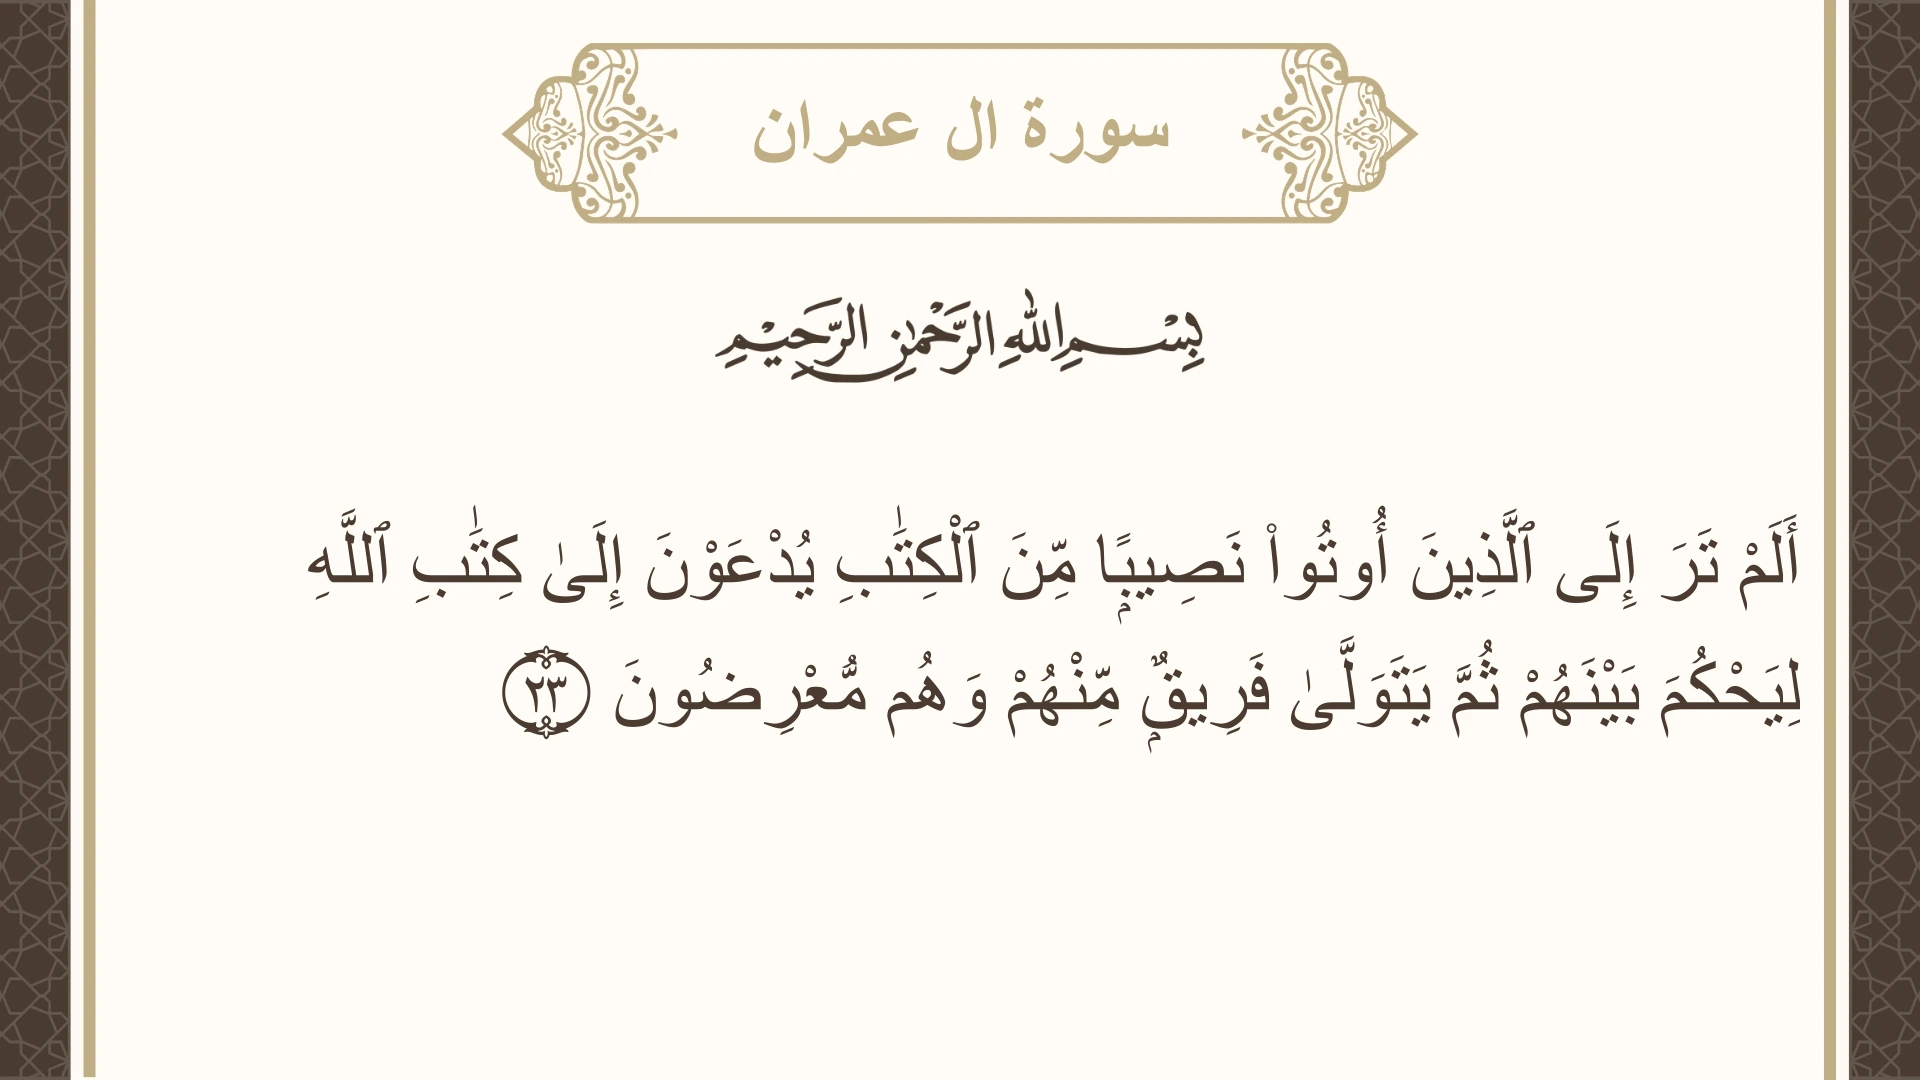 سورة ال عمران
بِسْمِ اللهِ الرَّحْمٰنِ الرَّحِيْمِ
أَلَمْ تَرَ إِلَى ٱلَّذِينَ أُوتُوا۟ نَصِيبًۭا مِّنَ ٱلْكِتَـٰبِ يُدْعَوْنَ إِلَىٰ كِتَـٰبِ ٱللَّهِ
لِيَحْكُمَ بَيْنَهُمْ ثُمَّ يَتَوَلَّىٰ فَرِيقٌۭ مِّنْهُمْ وَهُم مُّعْرِضُونَ ٢٣